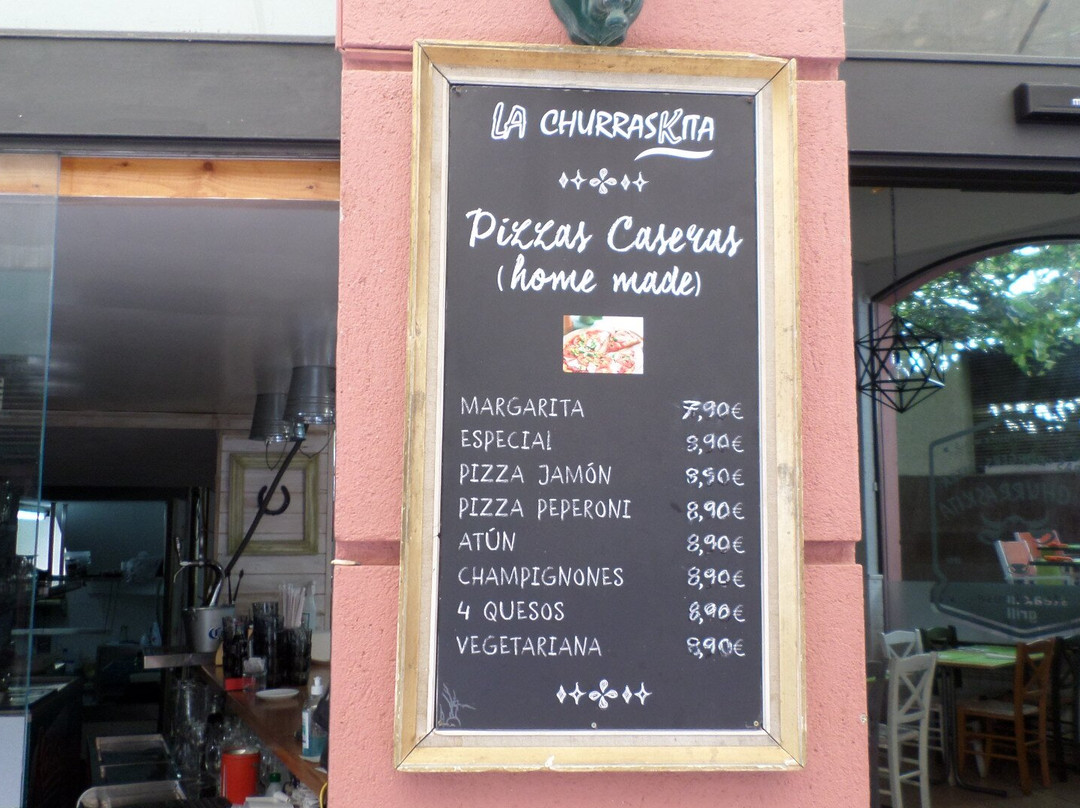 LA CHURRASKITA
Pizzas Caseras
(home made)
MARGARITA 7,90€
ESPECIAL 8,90€
PIZZA JAMÓN 8,90€
PIZZA PEPERONI 8,90€
ATÚN 8,90€
CHAMPIGNONES 8,90€
4 QUESOS 8,90€
VEGETARIANA 8,90€
grill